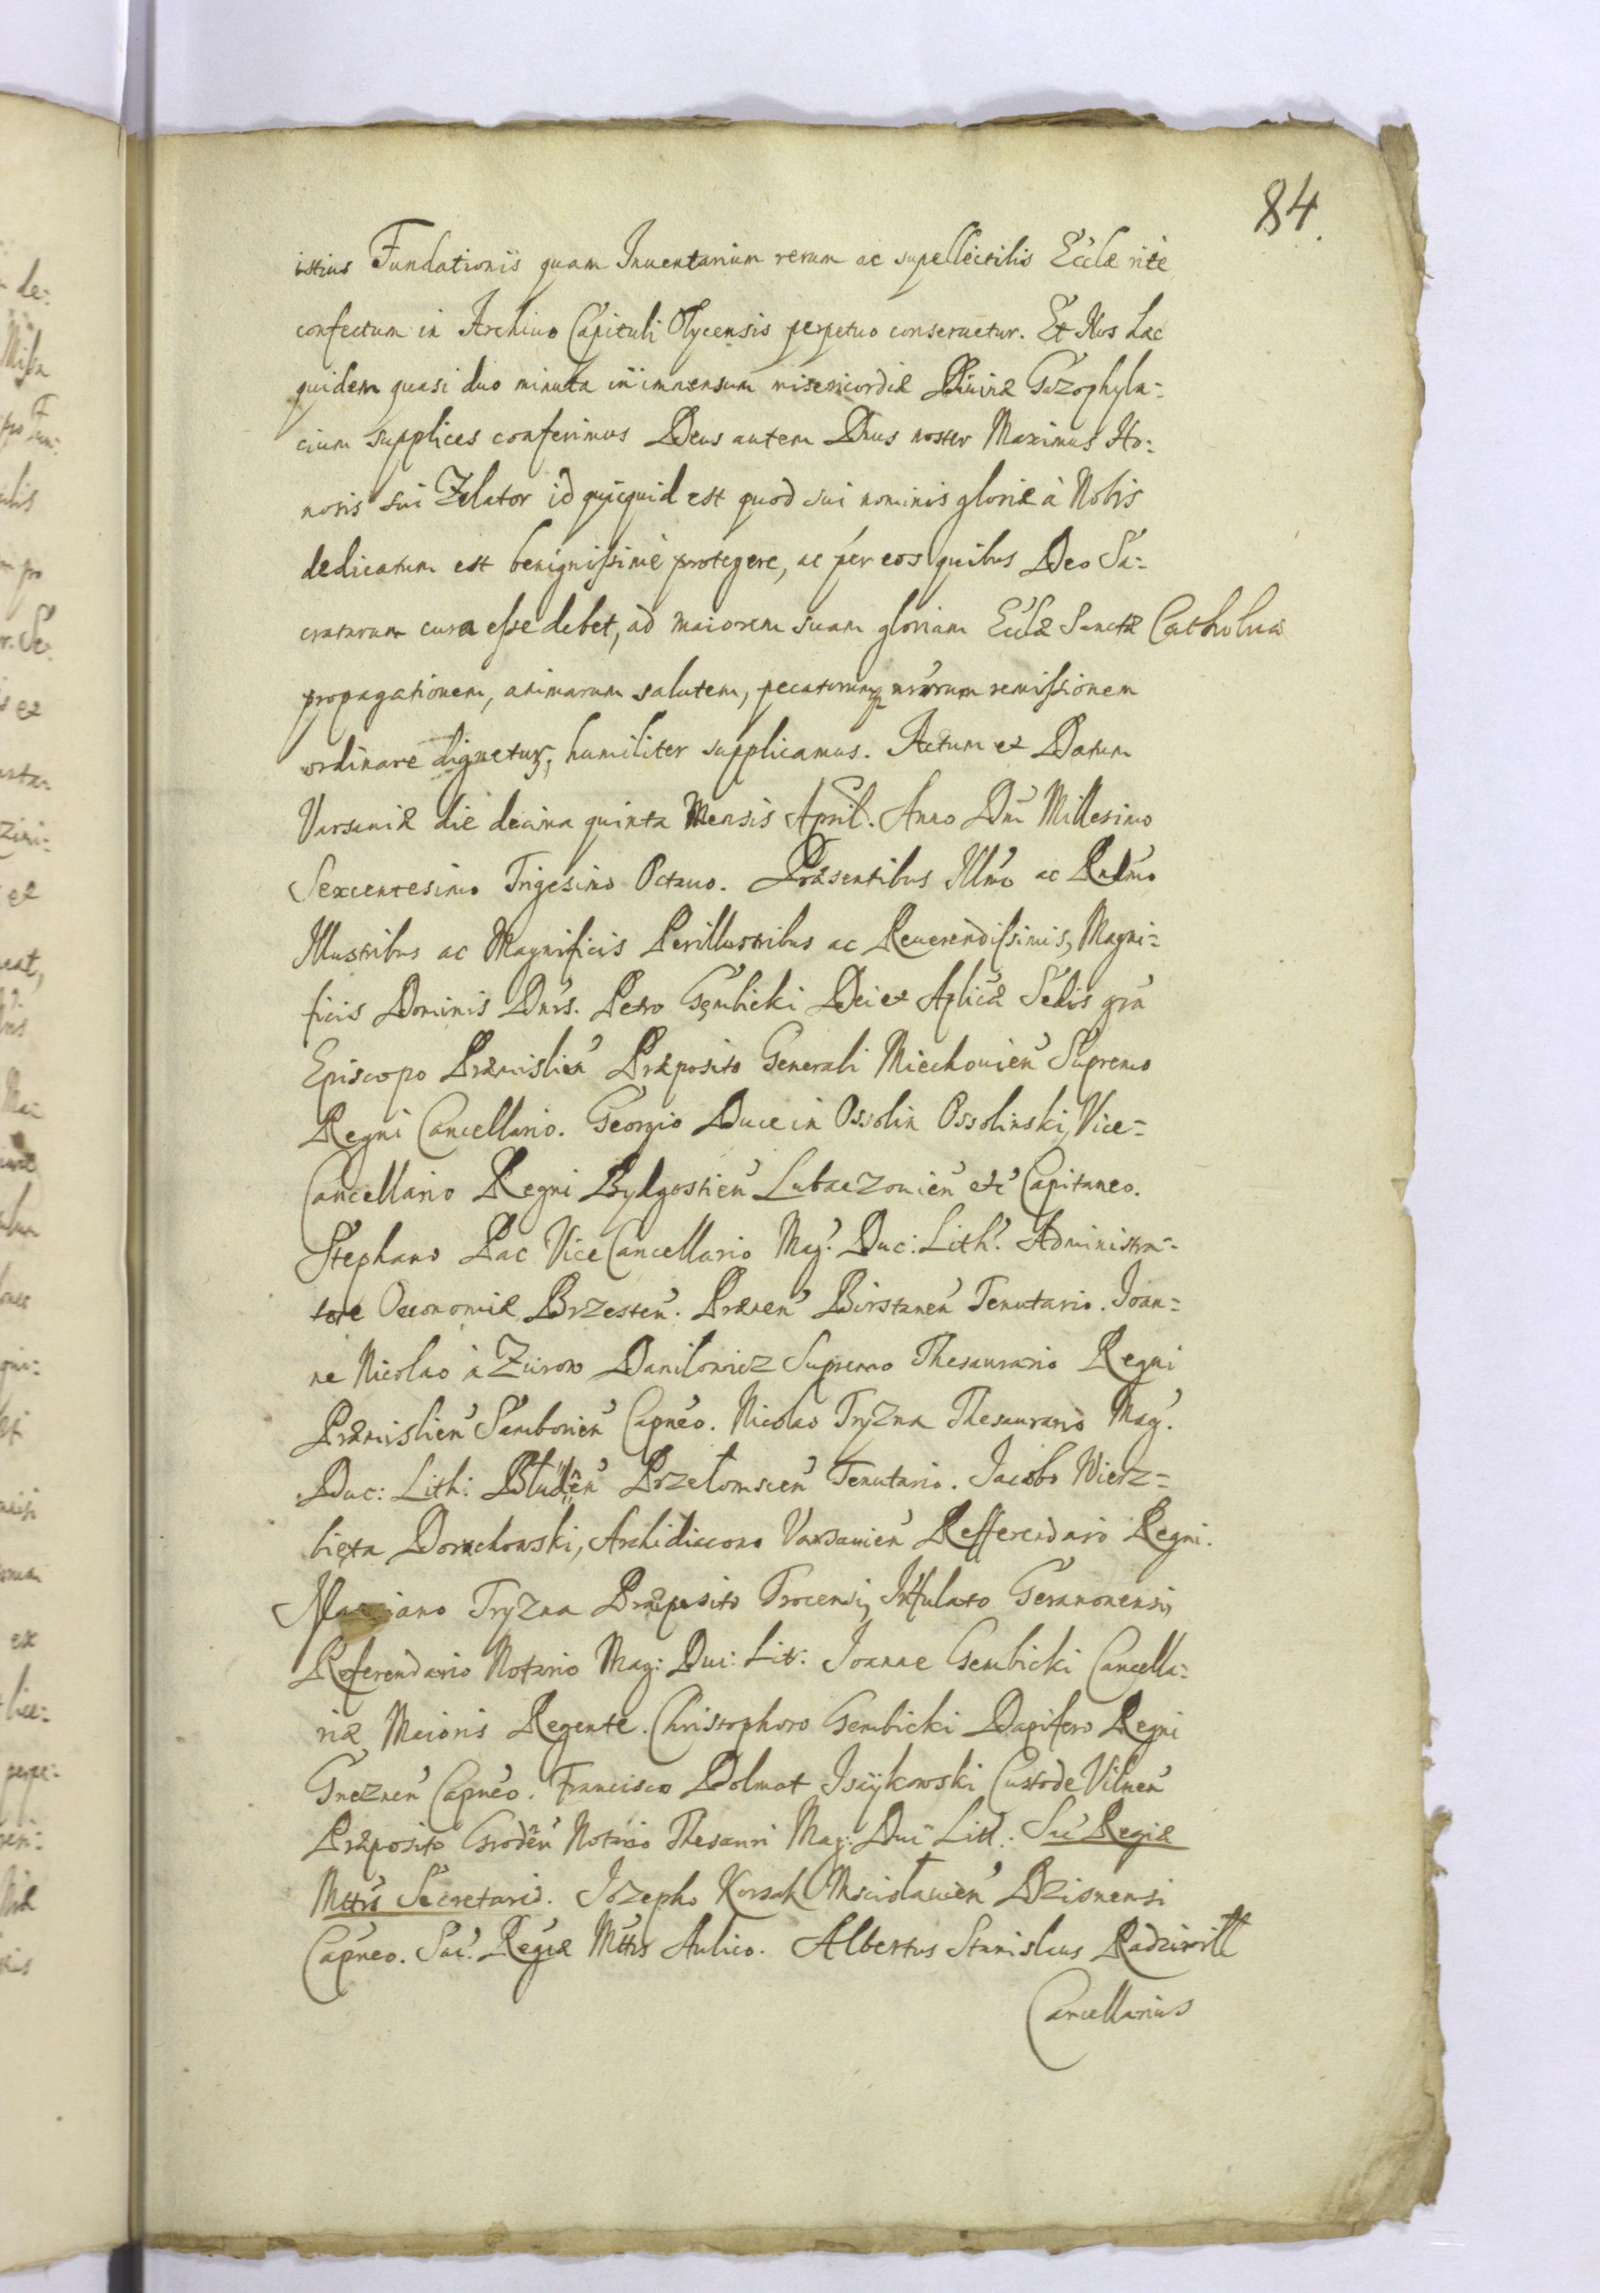 84.
istius Fundationis quam Inuentarium rerum ac supellectilis Eccłæ ritè
confectum in Archiuo Capituli Olycensis perpetuo conseruetur. Et Nos hæc
quidem quasi duo minuta in immensum misericordiæ Diuinæ Gazophyla=
cium supplices conferimus Deus autem Dnus noster Maximus Ho=
noris sui Zelator id quicquid est quod sui nominis gloriæ à Nobis
dedicatum est benignissimè protegere, ac per eos quibus Deo Sa=
cratarum cura esse debet, ad maiorem suam gloriam Eccłæ Sanctæ Catholicæ
propagationem, animarum salutem, pecatorumq nrorum remissionem
ordinare dignetur, humiliter supplicamus. Actum et Datum
Varsauiæ die decima quinta Mensis April. Anno Dni Millesimo
Sexcentesimo Trigesimo Octauo. Præsentibus Illmo ac Rndmo
Illustribus ac Magnificis Perillustribus ac Reuerendissimis, Magni=
ficis Dominis Dnis. Petro Gembicki Dei et Aplicæ Sedis gra
Episcopo Præmislien Præposito Generali Miechouien Supremo
Regni Cancellario. Georgio Duce in Ossolin Ossolinski, Vice=
Cancellario Regni Bydgostien Lubaczouien etc Capitaneo.
Stephano Pac Vice Cancellario Mag. Duc: Lith. Administra=
tore Oeconomiæ Brzesten. Prænen Birstanen Tenutario. Joan=
ne Nicolao à Zurow Daniłowicz Supremo Thesaurario Regni
Præmislien Samborien Capneo. Nicolao Tryzna Thesaurario Mag.
Duc: Lith: Bluden Przełomscen Tenutario. Jacobo Wierz=
bięta Doruchowski, Archidiacono Varsauien Refferendario Regni.
Marciano Tryzna Præposito Trocensi, Infulato Geranonensi,
Referendario Notario Mag: Duc: Lit: Joanne Gembicki Cancella=
riæ Maioris Regente. Christophoro Gembicki Dapifero Regni
Gneznen Capneo. Francisco Dolmat Isaykowski Custode Vilnen
Præposito Groden Notario Thesauri Mag: Duc Lith: Sac Regiæ
Mttis Secretario. Jozepho Korsak Mscisłauien Dzisnensi
Capneo. Sac. Regiæ Mttis Aulico. Albertus Stanislaus Radziwiłł
Cancellarius